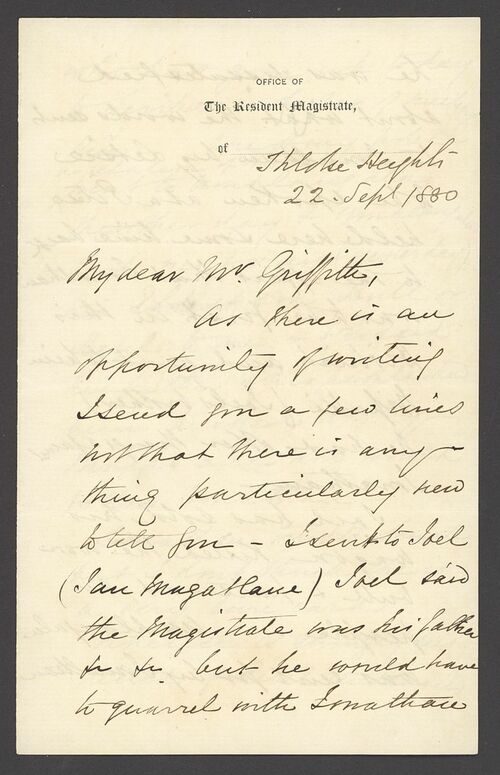 OFFICE OF
The Resident Magistrate,
of Thlotse Heights
22. Sept 1880
My dear Mr. Griffith,
As there is an
opportunity of writing
I send you a few lines
not that there is any-
thing particularly new
to tell you - I sent to Joel
(Ian Magatlane) Joel said
the Magistrate was his father
&c &c but he would have
to quarrel with Jonathan